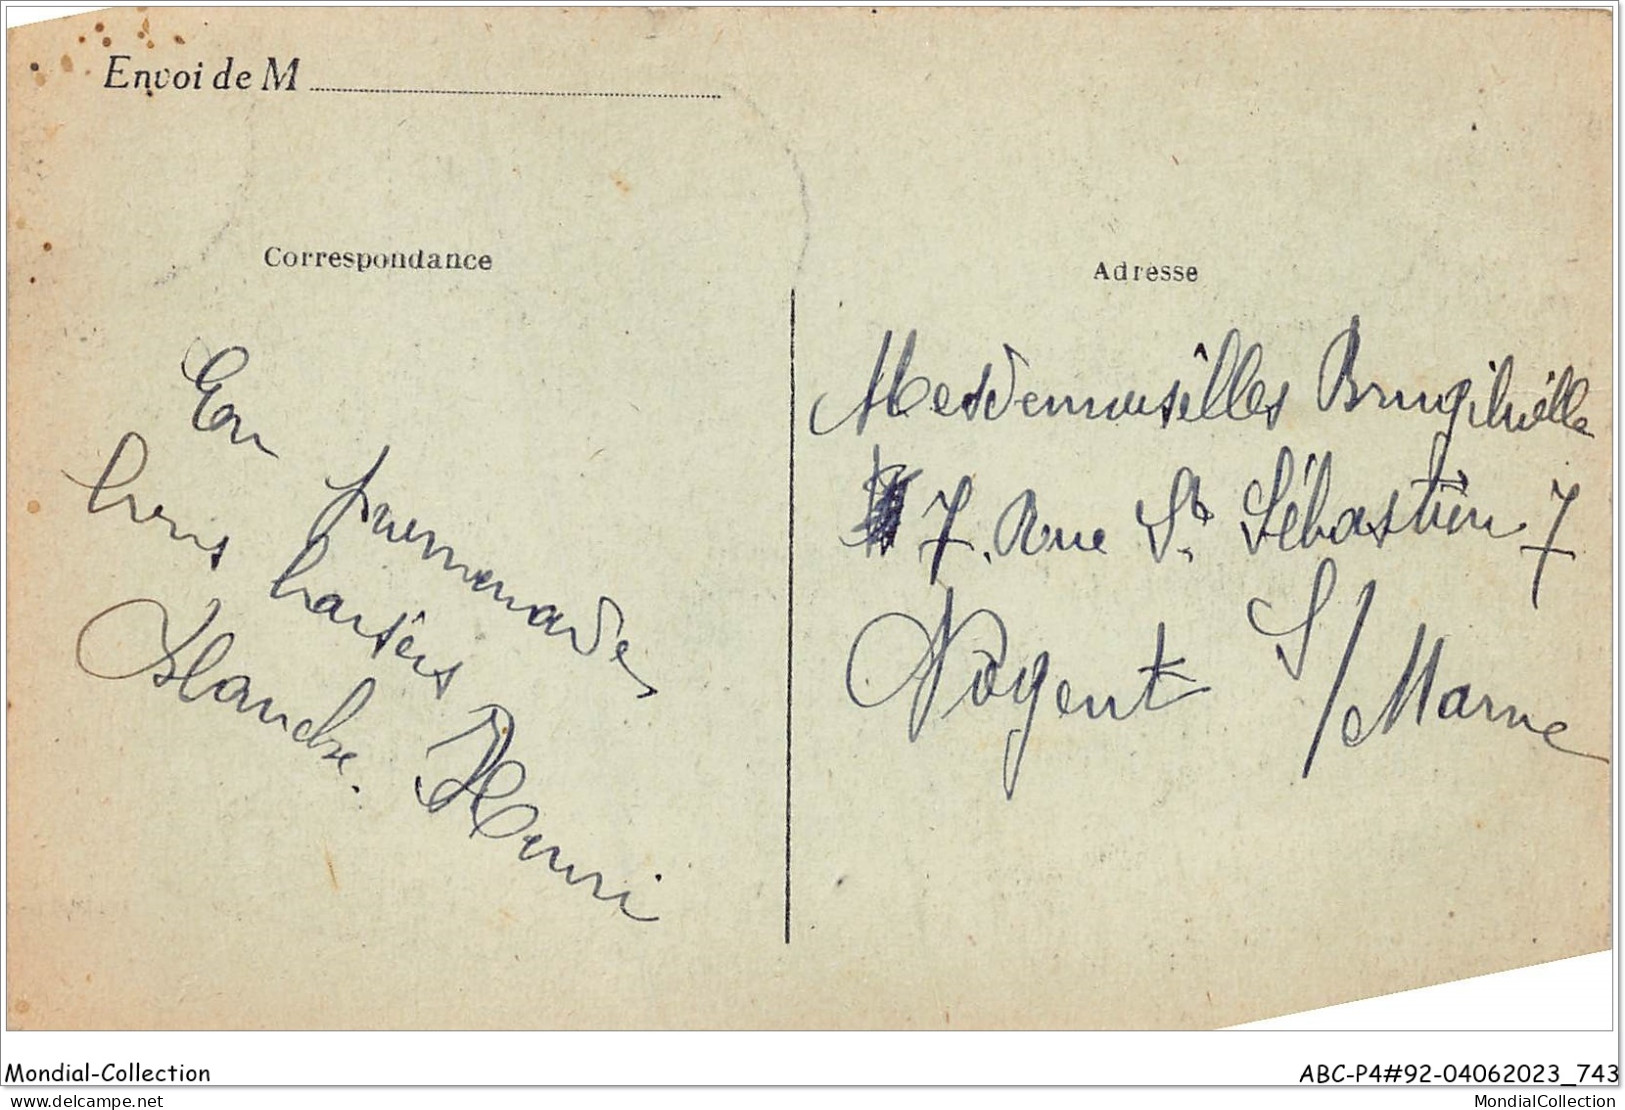 Envoi de M
Correspondance
En promenade,
bons baisers
Blanche. Henri
Adresse
Mesdemoiselles
7. Rue St. Sébastien 7
Nogent S/Marne
Mondial-Collection
ABC-P4#92-04062023_743
delcampe.net
MondialCollection